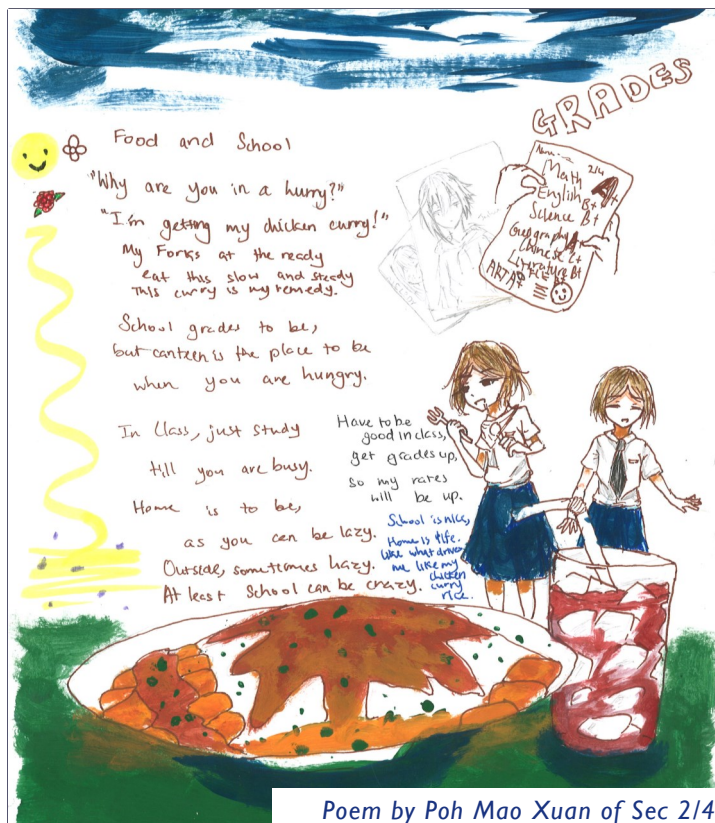 GRADES
Food and School
"Why are you in a hurry?"
"I'm getting my chicken curry!"
My Forks at the ready
eat this slow and steady
This curry is my remedy.
School grades to be,
but canteen is the place to be
when you are hungry.
In Class, just study
till you are busy.
Home is to be,
as you can be lazy.
Outside, sometimes hazy.
At least School can be crazy.
Have to be
good in class,
get grades up,
so my rates
will be up.
School is nice,
Home is life.
like what drives
me like my
chicken
curry
rice.
2/4
Math
English B+
Science B+
Geography
Chinese
Literature B+
ART A+
Poem by Poh Mao Xuan of Sec 2/4